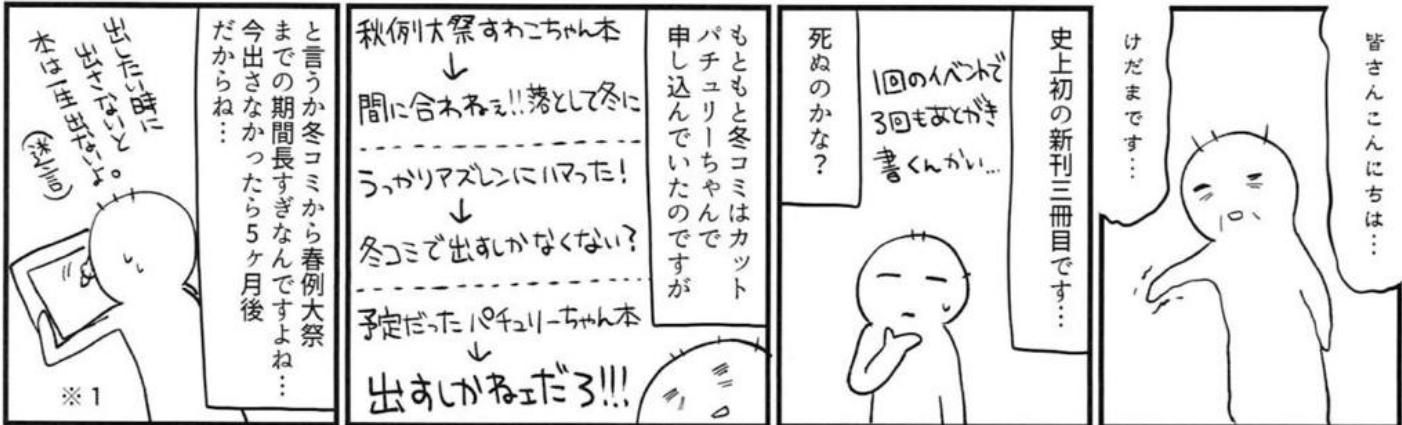 皆さんこんにちは…
けだまです…
史上初の新刊三冊目です…
1回のイベントで
3回もあとがき
書くんかい…
死ぬのかな?
もともと冬コミはカット
パチュリーちゃんで
申し込んでいたのですが
秋例大祭すわこちゃん本
↓
間に合わねぇ!!落として冬に
うっかりアズレンにハマった!
↓
冬コミで出すしかなくない?
予定だったパチュリーちゃん本
↓
出すしかねェだろ!!!
と言うか冬コミから春例大祭
までの期間長すぎなんですよね…
今出さなかったら5ヶ月後
だからね…
出したい時に
出さないと
本は一生出ないよ。
(迷言)
※1